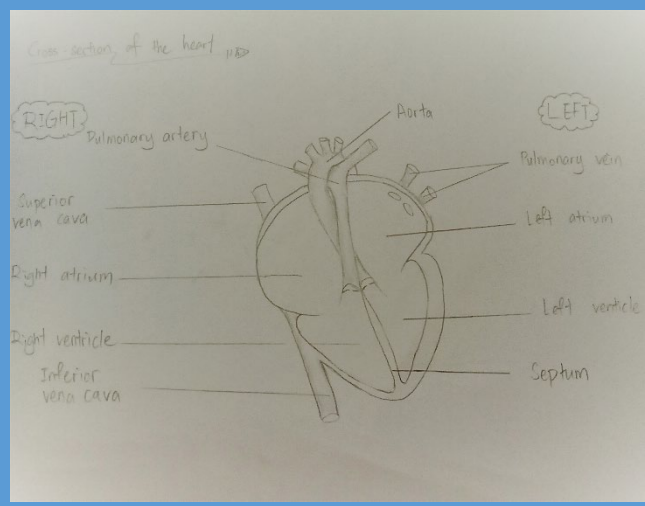 Cross-section of the heart
RIGHT
LEFT
Aorta
Pulmonary artery
Pulmonary vein
Superior
vena cava
Left atrium
Right atrium
Left venticle
Right ventricle
Inferior
vena cava
Septum